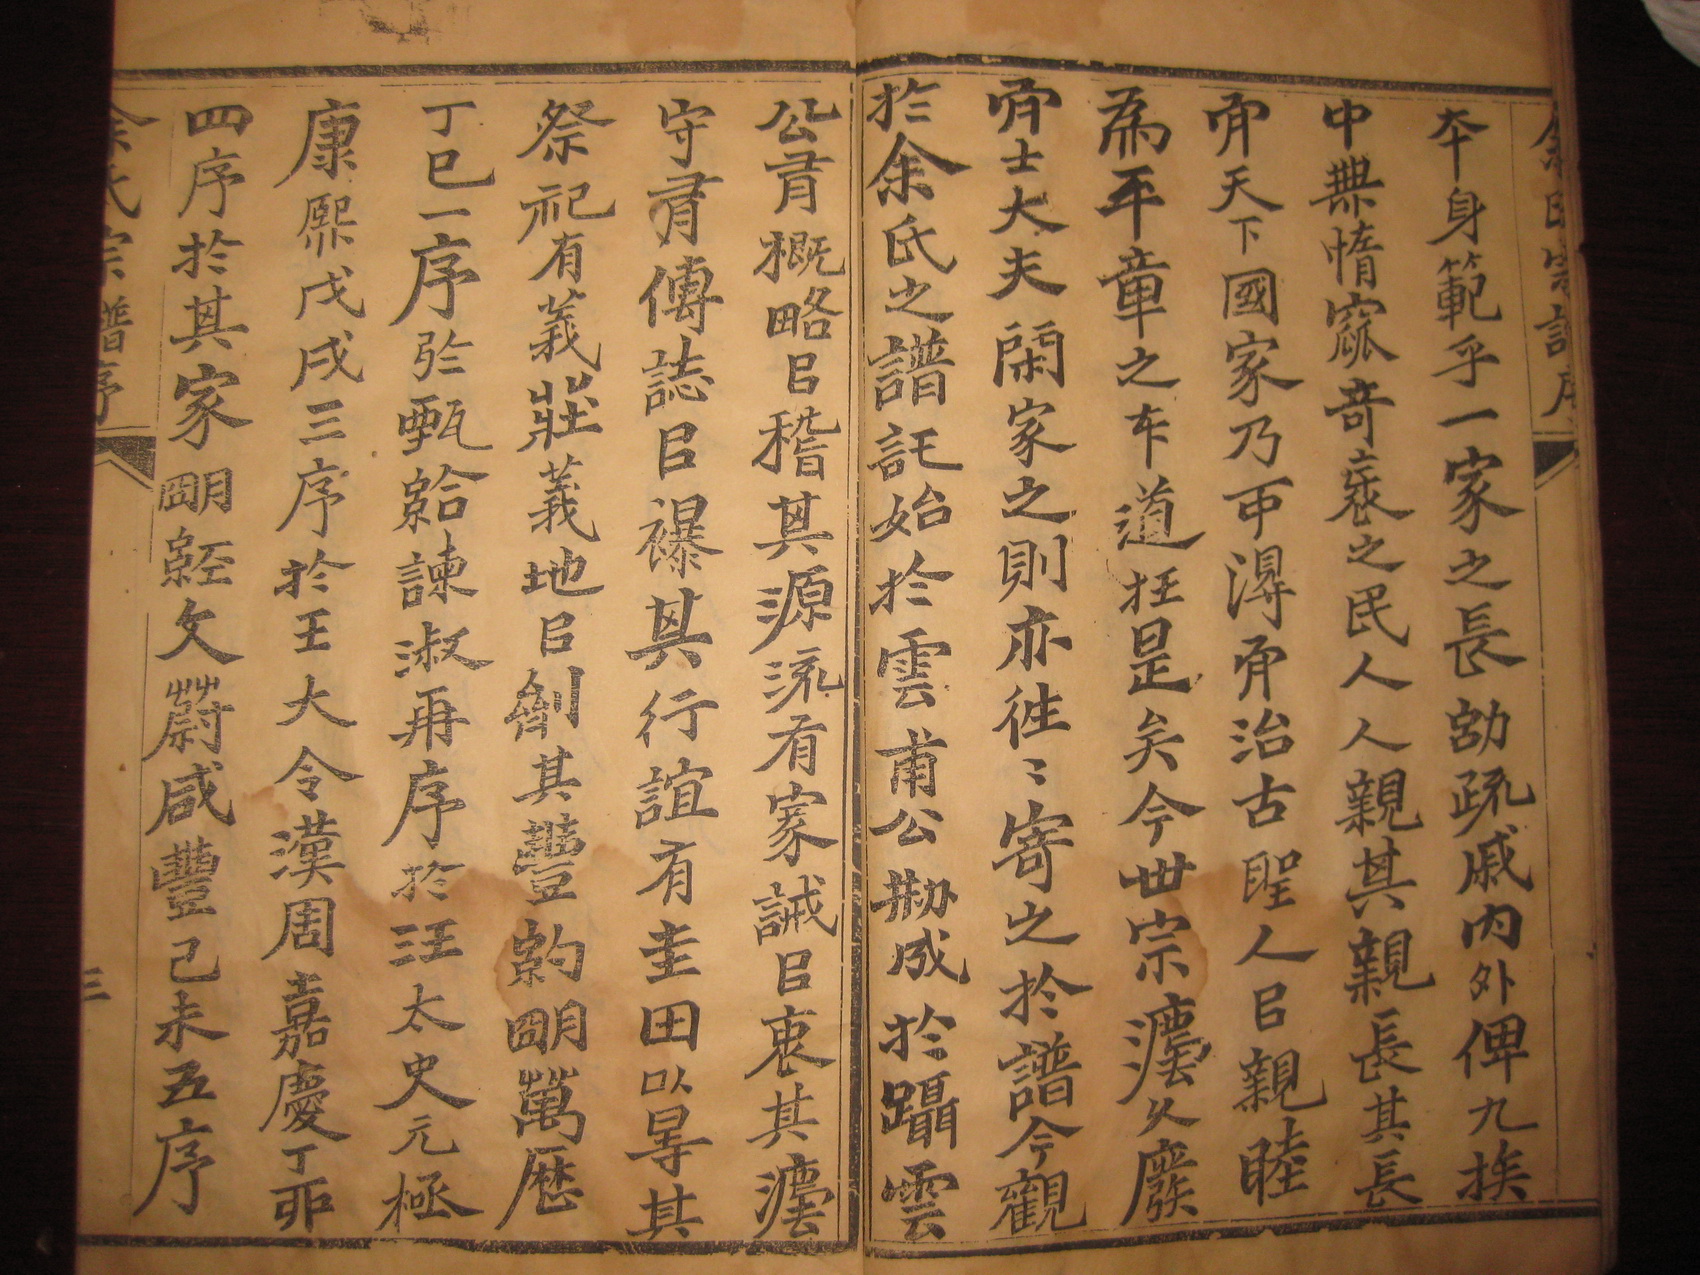 余氏宗譜序
夲身範乎一家之長㓜疏戚內外俾九族
中無惰窳奇衺之民人人親其親長其長
而天下國家乃可淂而治古聖人㠯親睦
為平章之夲道在是矣今世宗法久廢
而士大夫閑家之則亦徃〻寄之於譜今觀
於余氏之譜託始於雲甫公刱成於躡雲
公肯概略㠯稽其源流有家誡㠯衷其法
守肯傳誌㠯襮其行誼有圭田以㝵其
祭祀有義莊義地㠯劑其豐約明萬歷
丁巳一序於甄給諫淑再序於汪太史元極
康熙戊戌三序於王大令漢周嘉慶丁卯
四序於其家明經文蔚咸豐己未五序
余氏宗譜序
三